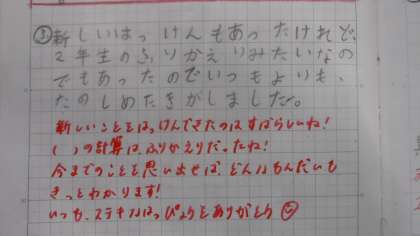 ③新しいはっけんもあったけれど、
2年生のふりかえりみたいなの
でもあったのでいつもよりも、
たのしめたきがしました。
新しいことをはっけんできたのはすばらしいね!
( )の計算はふりかえりだったね!
今までのことを思い出せば、どんなもんだいも
きっとわかります!
いつも、ステキなはっぴょうをありがとう